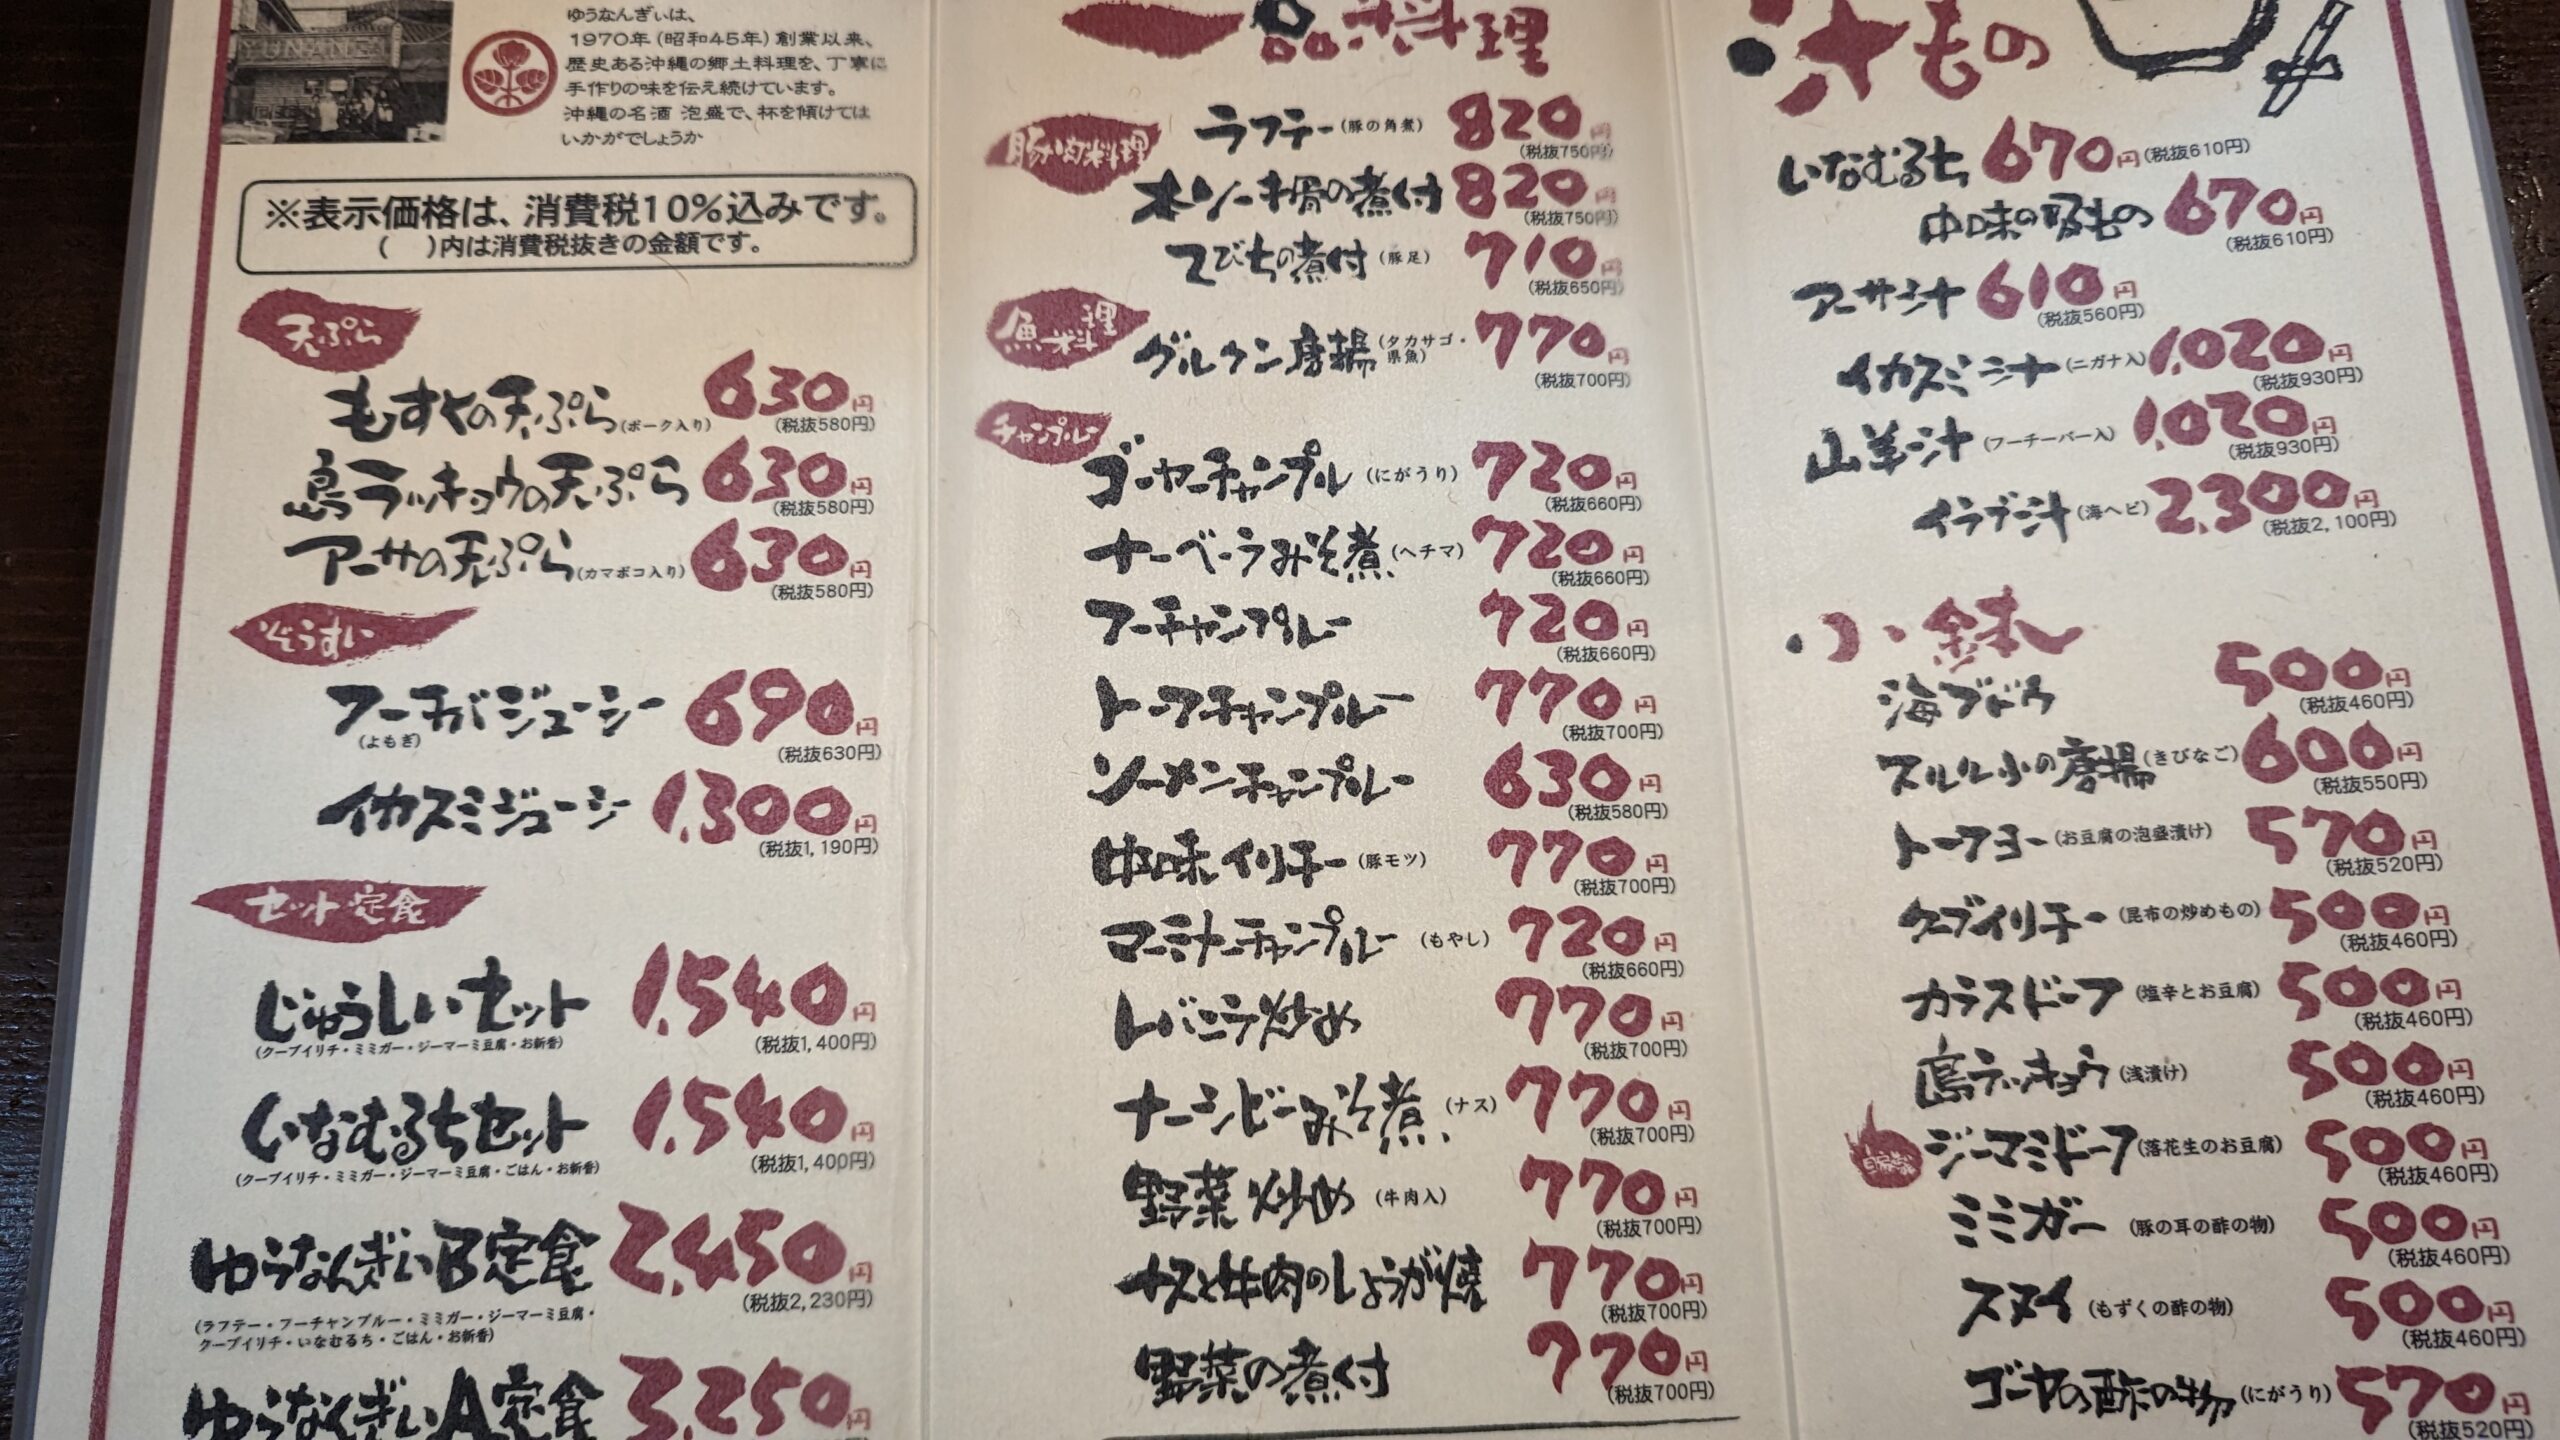 YUNANGI
ゆうなんぎぃは、
1970年(昭和45年)創業以来、
歴史ある沖縄の郷土料理を、丁寧に
手作りの味を伝え続けています。
沖縄の名酒 泡盛で、杯を傾けては
いかがでしょうか
※表示価格は、消費税10%込みです。
( )内は消費税抜きの金額です。
天ぷら
もずくの天ぷら(ポーク入り) 630円
(税抜580円)
島ラッキョウの天ぷら 630円
(税抜580円)
アーサの天ぷら(カマボコ入り) 630円
(税抜580円)
ぞうすい
フーチバジューシー 690円
(よもぎ)
(税抜630円)
イカスミジューシー 1,300円
(税抜1,190円)
セット定食
じゅうしぃセット 1,540円
(クーブイリチ・ミミガー・ジーマーミ豆腐・お新香)
(税抜1,400円)
いなむるちセット 1,540円
(クーブイリチ・ミミガー・ジーマーミ豆腐・ごはん・お新香)
(税抜1,400円)
ゆうなんぎぃB定食 2,450円
(税抜2,230円)
(ラフテー・フーチャンプルー・ミミガー・ジーマーミ豆腐・
クーブイリチ・いなむるち・ごはん・お新香)
ゆうなんぎぃA定食 3,250円
一品料理
豚肉料理
ラフテー(豚の角煮) 820円
(税抜750円)
本ソーキ骨の煮付 820円
(税抜750円)
てびちの煮付(豚足) 710円
(税抜650円)
魚料理
グルクン唐揚(タカサゴ・県魚) 770円
(税抜700円)
チャンプルー
ゴーヤーチャンプル(にがうり) 720円
(税抜660円)
ナーベーラみそ煮(ヘチマ) 720円
(税抜660円)
フーチャンプルー 720円
(税抜660円)
トーフチャンプルー 770円
(税抜700円)
ソーメンチャンプルー 630円
(税抜580円)
中味イリチー(豚モツ) 770円
(税抜700円)
マーミナーチャンプルー(もやし) 720円
(税抜660円)
レバニラ炒め 770円
(税抜700円)
ナーシビーみそ煮(ナス) 770円
(税抜700円)
野菜炒め(牛肉入) 770円
(税抜700円)
ナスと牛肉のしょうが焼 770円
(税抜700円)
野菜の煮付 770円
(税抜700円)
汁もの
いなむるち 670円(税抜610円)
中味の吸もの 670円
(税抜610円)
アーサ汁 610円
(税抜560円)
イカスミ汁(ニガナ入) 1,020円
(税抜930円)
山羊汁(フーチーバー入) 1,020円
(税抜930円)
イラブー汁(海ヘビ) 2,300円
(税抜2,100円)
小鉢
海ブドウ 500円
(税抜460円)
スルル小の唐揚(きびなご) 600円
(税抜550円)
トーフヨー(お豆腐の泡盛漬け) 570円
(税抜520円)
クーブイリチー(昆布の炒めもの) 500円
(税抜460円)
カラスドーフ(塩辛とお豆腐) 500円
(税抜460円)
島ラッキョウ(浅漬け) 500円
(税抜460円)
自家製 ジーマミドーフ(落花生のお豆腐) 500円
(税抜460円)
ミミガー(豚の耳の酢の物) 500円
(税抜460円)
スヌイ(もずくの酢の物) 500円
(税抜460円)
ゴーヤの酢の物(にがうり) 570円
(税抜520円)